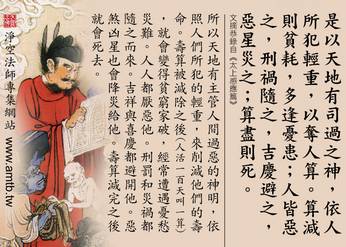 是以天地有司過之神，依人
所犯輕重，以奪人算。算減
則貧耗，多逢憂患；人皆惡
之，刑禍隨之，吉慶避之，
惡星災之；算盡則死。
文摘恭錄自《太上感應篇》
所以天地有主管人間過惡的神明，依
照人們所犯的輕重，來削減他們的壽
命。壽算被減除之後（人活一百天叫一算）
，就會變得貧窮家破，經常遭遇憂愁
災難。人人都厭惡他。刑罰和災禍都
隨之而來。吉祥與喜慶都避開他。惡
煞凶星也會降災給他。壽算減完之後
就會死去。
淨空法師專集網站
www.amtb.tw